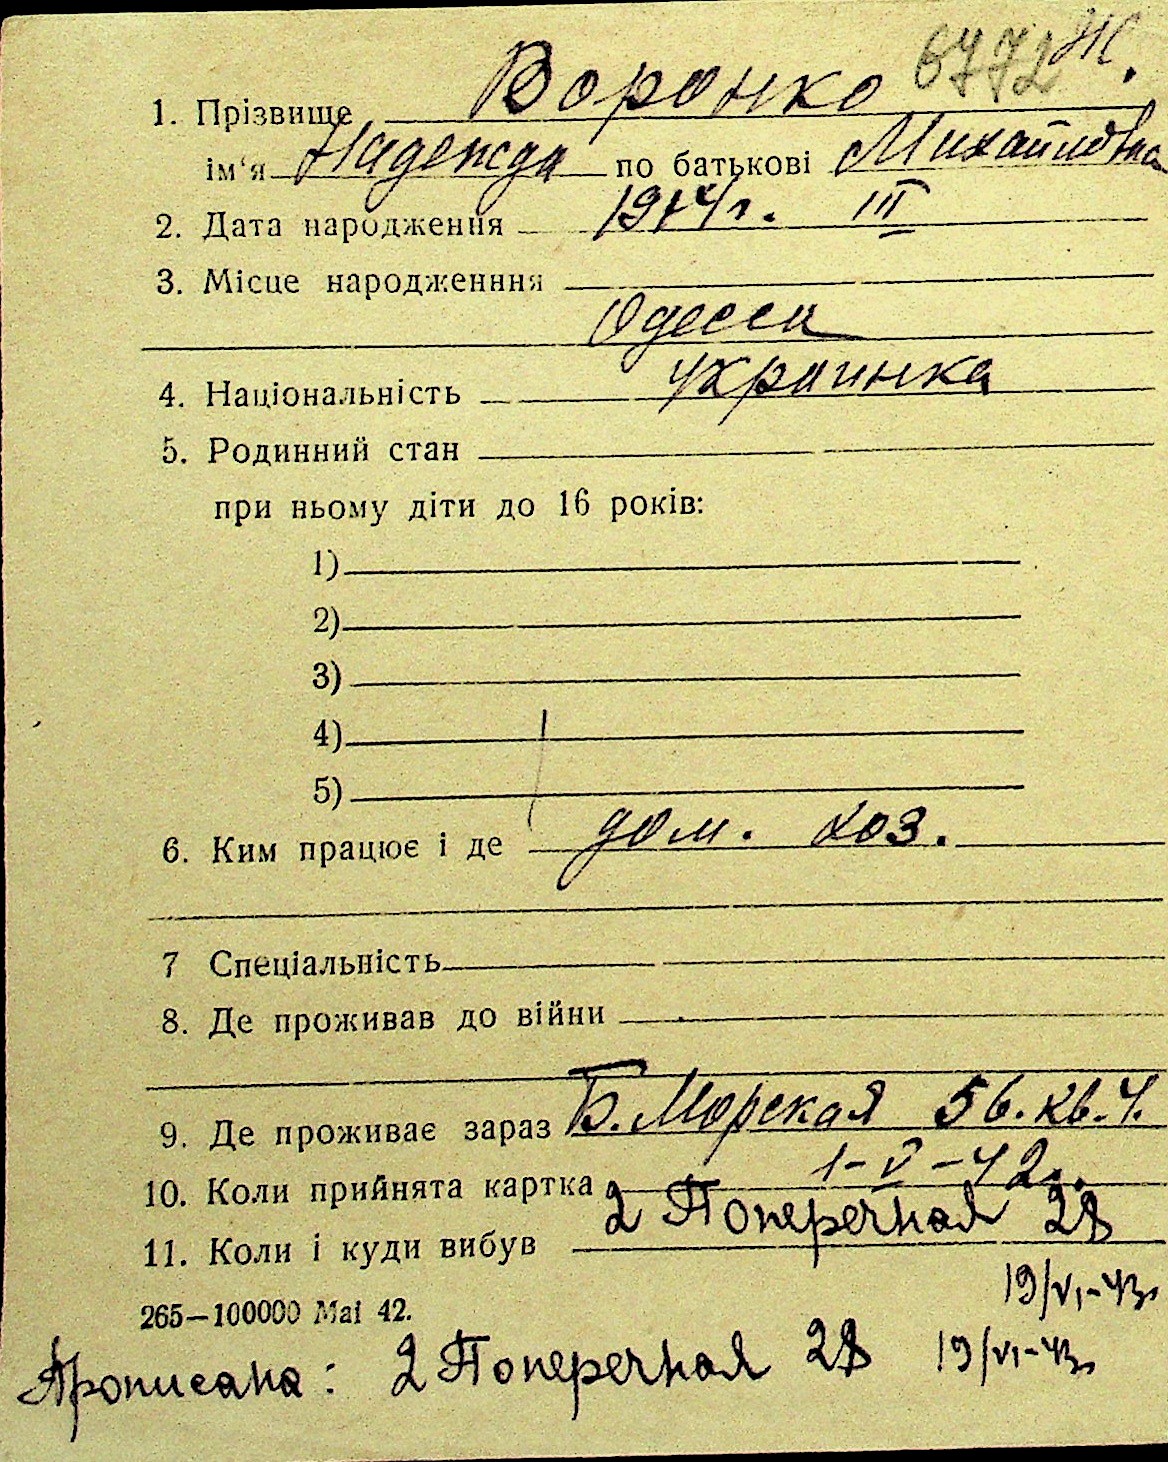 6772 Ж.
1. Прізвище Воронко
ім'я Надежда по батькові Михайловна
2. Дата народження 1914 г. III
3. Місце народженння
Одесса
4. Національність украинка
5. Родинний стан
при ньому діти до 16 років:
1)
2)
3)
4)
5)
6. Ким працює і де дом. хоз.
7 Спеціальність
8. Де проживав до війни
9. Де проживає зараз Б. Морская 56. кв. 4.
10. Коли прийнята картка 1-V-42 г.
11. Коли і куди вибув 2 Поперечная 28
19/VI-43.
265—100000 Mai 42.
Прописана: 2 Поперечная 28 19/VI-43.